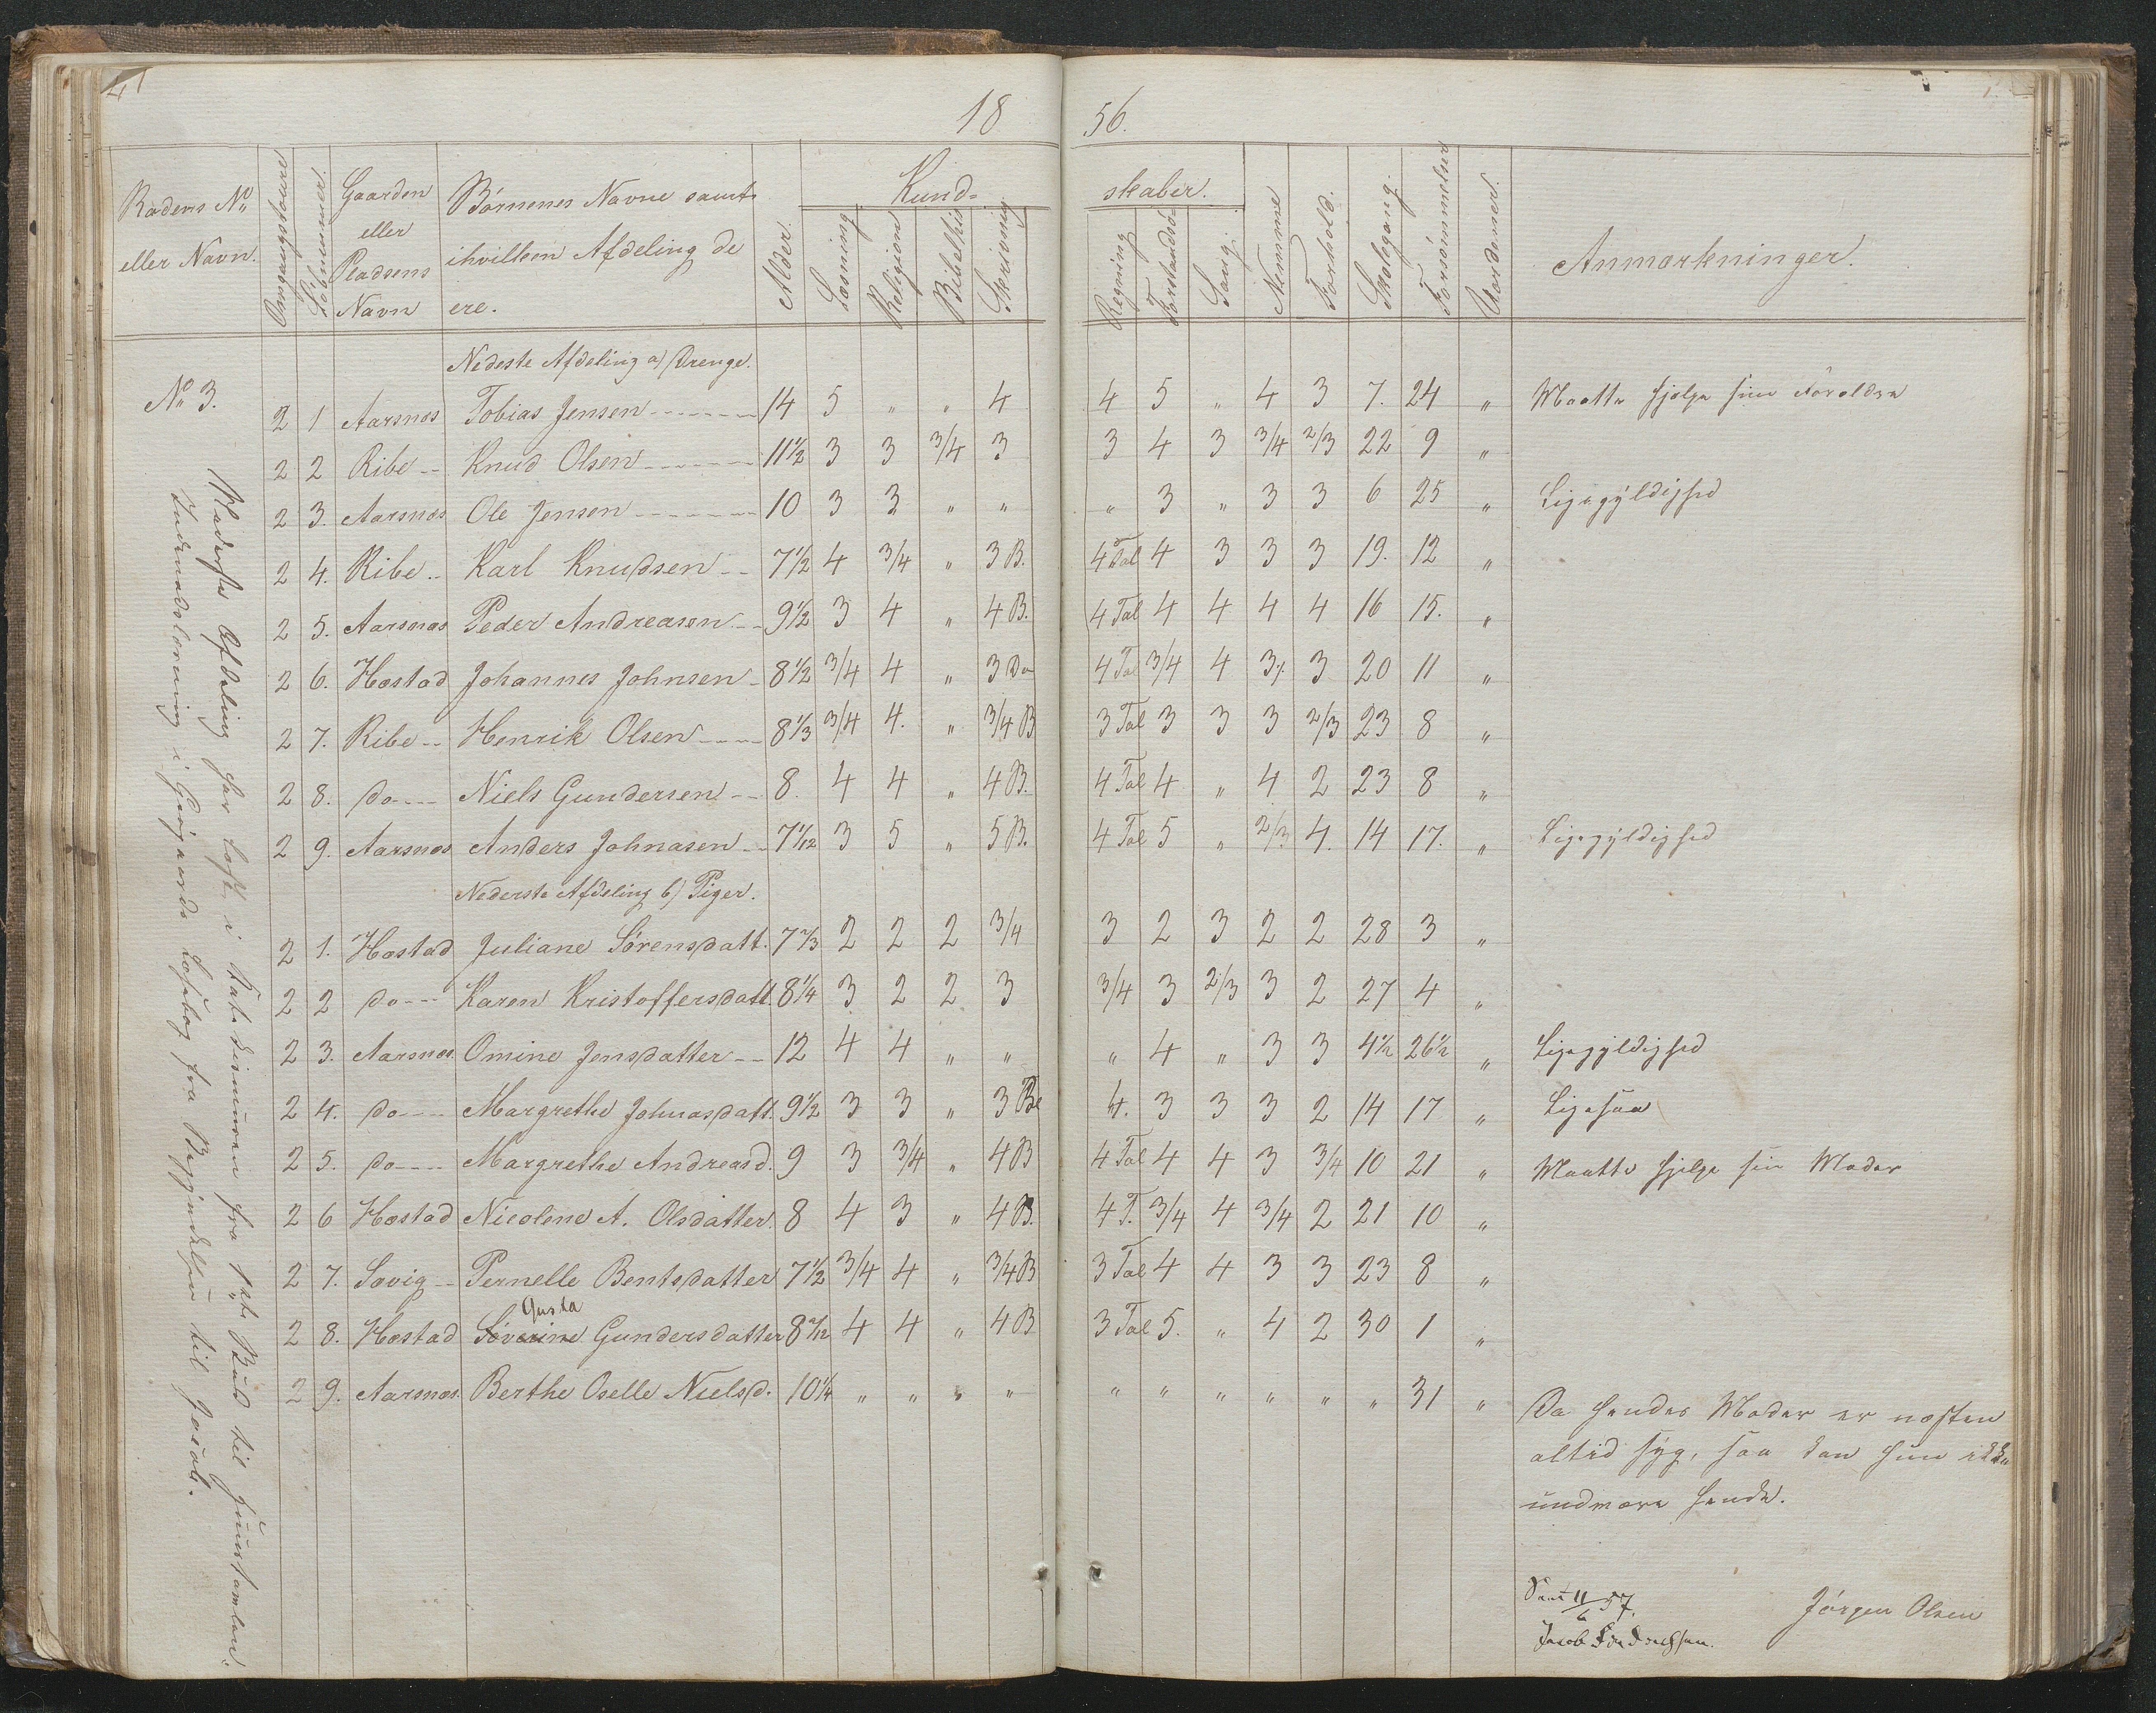 18 56.
Rodens No eller Navn. Omgangstoure Löbenummer. Gaarden eller Pladsens Navn Börnenes Navne samt ihvilken Afdeling de ere. Alder. Kund- skaber. Læsning Religion Bibelhis Skrivning Regning Forstandsö- Sang. Nemme Forhold. Skolegang. Forsömmelser Udendomer. Anmærkninger.
Nedeste Afdeling a) Drenge.
No 3. 2 1 Aarsnæs Tobias Jensen 14 5 " " 4 4 5 " 4 3 7. 24 " Maatte hjelpe sine Forældre
2 2 Ribe Knud Olsen 11½ 3 3 3/4 3 3 4 3 3/4 2/3 22 9 "
2 3. Aarsnæs Ole Jensen 10 3 3 " " " 3 " 3 3 6 25 " Ligegyldighed
2 4. Ribe Karl Knudsen 7½ 4 3/4 " 3 B. 4 Tal 4 3 3 3 19. 12 "
2 5. Aarsnæs Peder Andreasen 9½ 3 4 " 4 B. 4 Tal 4 4 4 4 16 15. "
2 6. Hæstad Johannes Johnsen 8½ 3/4 4 " 3 Do 4 Tal 3/4 4 3/. 3 20 11 "
2 7. Ribe Henrik Olsen 8⅓ 3/4 4. " 3/4 B 3 Tal 3 3 3 2/3 23 8 "
2 8. do Niels Gundersen 8. 4 4 " 4 B. 4 Tal 4 " 4 2 23 8 "
2 9. Aarsnæs Anders Johnasen 7 1/12 3 5 " 5 B. 4 Tal 5 " 2/3 4. 14 17. " Ligegyldighed
Nederste Afdeling b) Piger.
2 1. Hæstad Juliane Sörensdatt. 7⅔ 2 2 2 3/4 3 2 3 2 2 28 3 "
2 2 do Karen Kristoffersdatt 8¼ 3 2 2 3 3/4 3 2/3 3 2 27 4 "
2 3. Aarsnæs. Omine Jensdatter 12 4 4 " " " 4 " 3 3 4½ 26½ " Ligegyldighed
2 4. do Margrethe Johnasdatt. 9½ 3 3 " 3 Be 4. 3 3 3 2 14 17 " Ligesaa
2 5. do Margrethe Andreasd. 9 3 3/4 " 4 B 4 Tal 4 4 3 3/4 10 21 " Maatte hjelpe sin Moder
2 6 Hæstad Nicolene A. Olsdatter. 8 4 3 " 4 B. 4 T. 3/4 4 3/4 2 21 10 "
2 7. Løvig Pernelle Bentsdatter 7½ 3/4 4 " 3/4 B 3 Tal 4 4 3 3 23 8 "
Gusta
2 8. Hæstad Söverine Gundersdatter 8 7/12 4 4 " 4 B 3 Tal 5. " 4 2 30 1 "
2 9. Aarsnæs. Berthe Oselle Nielsd. 10¼ " " " " " " " " " " 31 " Da hendes Moder er næsten
altid syg, saa kan hun ikke
undvære hende.
Nederste Afdeling har læst i Katekismusen fra 1ste Bud til
Indenadslæsning i Læsebog fra Begyndelsen til
Seet 11/6 57.
Jörgen Olsen
Jacob